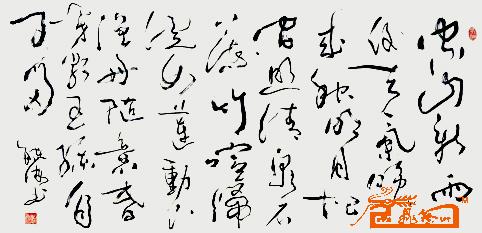 空山新雨
後天氣晚
来秋明月松
间照清泉石
上流竹喧歸
浣女莲動下
渔舟随意春
芳歇王孫自
可留